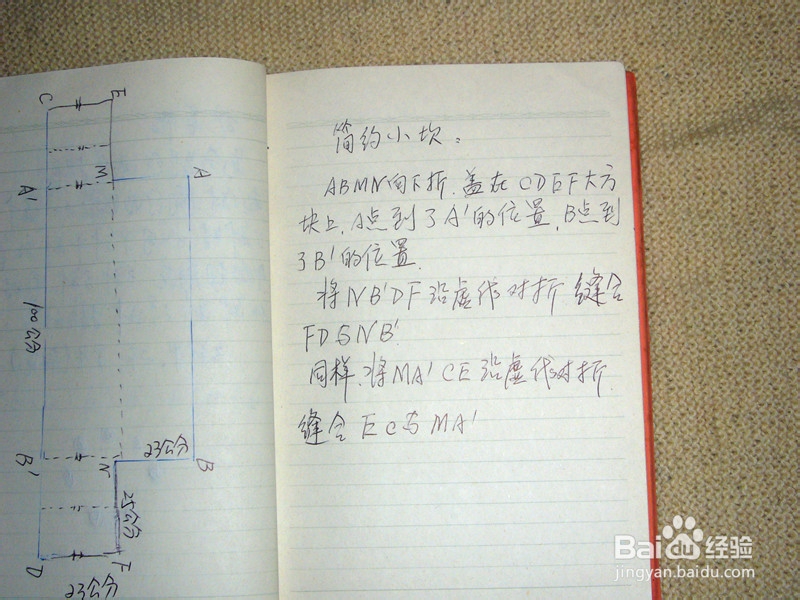 C
E
M
A
A'
100公分
B'
N
23公分
B
25公分
D
F
23公分
简约小坎。
ABMN向下折.盖在CDEF大方
块上,A点到了A'的位置,B点到
了B'的位置.
将NB'DF沿虚线对折 缝合
FD与NB'.
同样.将MA'CE沿虚线对折.
缝合EC与MA'
Baidu经验
jingyan.baidu.com